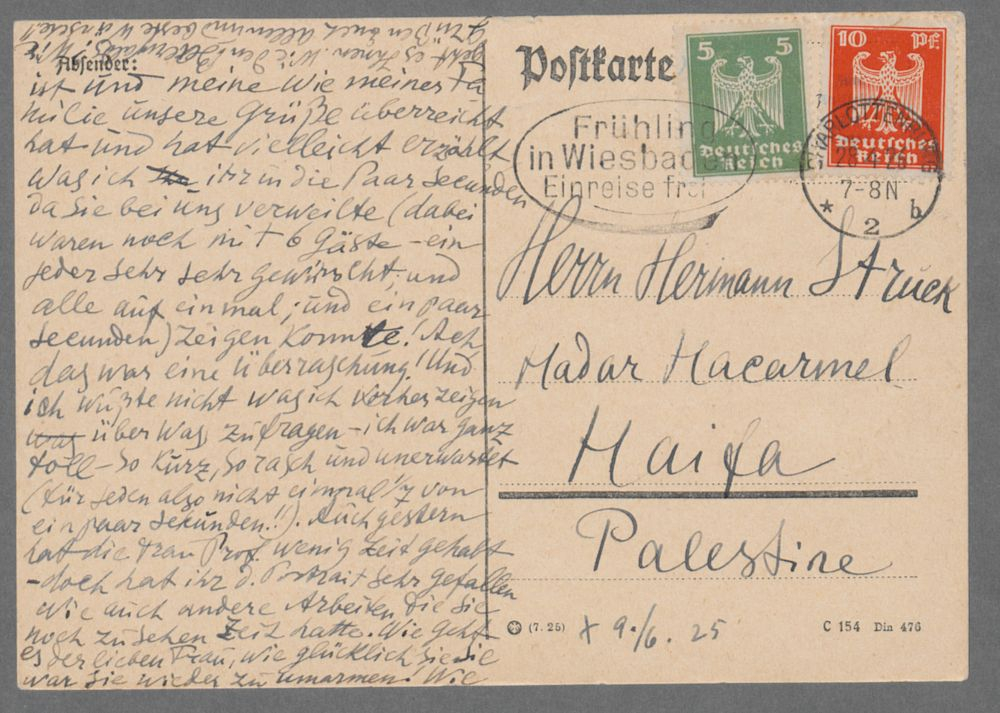 Absender:
ist und meine wie meiner Fa
milie unsere Grüße überreicht
hat und hat vielleicht erzählt
was ich ihr in die Paar Secunden
da Sie bei uns verweilte (dabei
waren noch mit 6 Gäste – ein
jeder sehr sehr gewünscht, und
alle auf einmal; und ein paar
secunden) zeigen konnte! Ach
das war eine Überraschung! Und
ich wußte nicht was ich vorher zeigen
was über was zu fragen – ich war ganz
toll – so kurz, so rasch und unerwartet
(für jeden also nicht einmal 1/7 von
ein paar sekunden!!). Auch gestern
hat die Frau Prof. wenig Zeit gehabt
– doch hat ihr d. Portrait sehr gefallen
wie auch andere Arbeiten die sie
noch zu sehen Zeit hatte. Wie geht
es der lieben Frau, wie glücklich sie
war Sie wieder zu umarmen! Wie
geht es Ihnen. Wie den
Grüßen auch allen und beste Wünsche!
Postkarte
5 5
Deutsches
Reich
10 PF
Deutsches
Reich
Frühling
in Wiesbaden
Einreise frei
CHARLOTTENBURG
7-8N
* 2 b
Herrn Hermann Struck
Hadar Hacarmel
Haifa
Palestine
(7. 25)
x 9./6. 25
C 154 Din 476